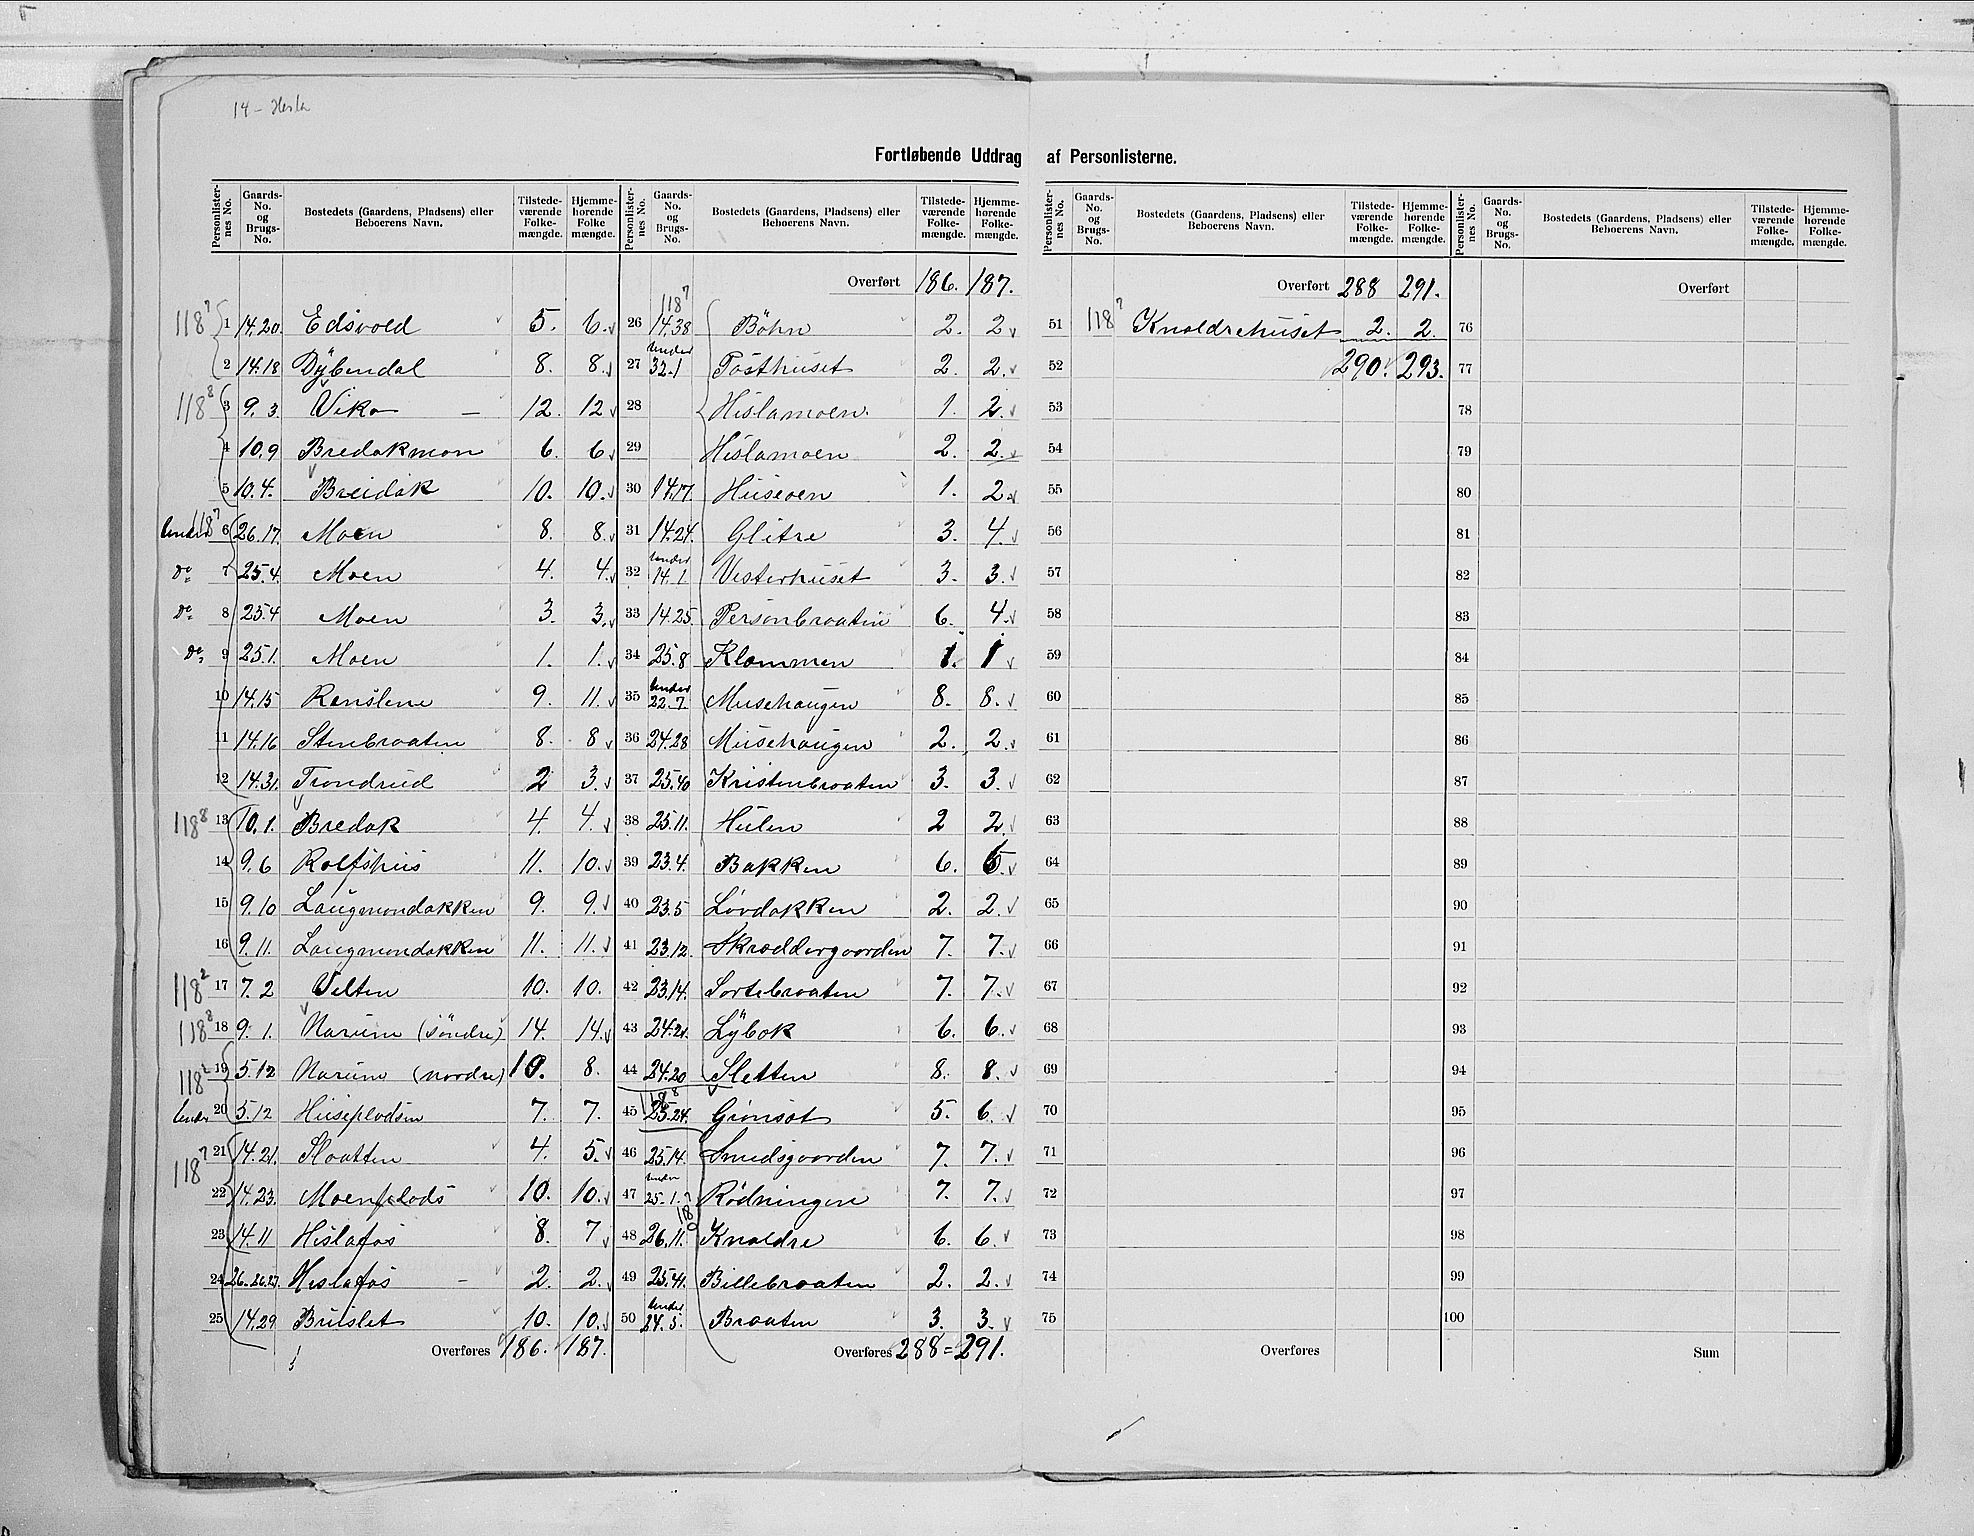 14 – Hesla
Fortløbende Uddrag af Personlisterne.
Personlisternes No. Gaards-No. og Brugs-No. Bostedets (Gaardens, Pladsens) eller Beboerens Navn. Tilstedeværende Folkemængde. Hjemmehørende Folkemængde.
Personlisternes No. Gaards-No. og Brugs-No. Bostedets (Gaardens, Pladsens) eller Beboerens Navn. Tilstedeværende Folkemængde. Hjemmehørende Folkemængde.
Personlisternes No. Gaards-No. og Brugs-No. Bostedets (Gaardens, Pladsens) eller Beboerens Navn. Tilstedeværende Folkemængde. Hjemmehørende Folkemængde.
Personlisternes No. Gaards-No. og Brugs-No. Bostedets (Gaardens, Pladsens) eller Beboerens Navn. Tilstedeværende Folkemængde. Hjemmehørende Folkemængde.
118⁷ 1 14.20. Edsvold 5. 6. v
2 14.18 Dÿbendal 8. 8. v
118⁸ 3 9. 3. Vika – 12. 12 v
4 10.9 Bredakmon 6. 6 v
5 10.4. Breidak 10. 10. v
118⁷ Under 6 26.17. Moen 8. 8. v
do 7 25.4. Moen 4. 4. v
do 8 25.4 Moen 3. 3. v
do 9 25.1. Moen 1. 1. v
10 14.15 Renslene 9. 11. v
11 14.16 Stenbraaten 8. 8 v
12 14.31. Trondrud 2 3. v
118⁸ 13 10.1. Bredak 4. 4. v
14 9.6 Rolfshus 11. 10. v
15 9.10 Laugmondakken 9. 9. v
16 9.11. Laugmondakken 11. 11. v
118² 17 7.2 Velten 10. 10.
118⁸ 18 9. 1. Narum (söndre) 14. 14. v
118² 19 5.12 Narum (nordre) 10. 8.
Under 20 5.12 Huseplodsen 7. 7.
118⁷ 21 14.21. Slaatten 4. 5. v
22 14.23. Moenplads 10. 10. v
23 14.11 Hislafos 8. 7 v
24 26.26.27. Hislafos – 2. 2. v
25 14.29 Brislet 10. 10. v
Overføres 186. 187.
Overført 186. 187.
118⁷
26 14.38 Böhn 2. 2 v
27 Under 32.1 Posthuset 2. 2. v
28 Hislamoen. 1. 2. v
29 Hislamoen 2. 2. v
30 14.17. Huseoen 1. 2. v
31 14.24. Glitre 3. 4. v
32 Under 14.1 Vesterhuset 3. 3. v
33 14.25. Personbraaten 6. 4. v
34 25.8 Klommen 1. 1 v
35 Under 22.7. Musehaugen 8. 8. v
36 24.28 Musehaugen 2. 2. v
37 25.40 Kristenbraaten 3. 3. v
38 25.11. Hulen 2 2. v
39 23.4. Bakken 6. 5. v
40 23.5 Lövdakken 2. 2. v
41 23.12. Skræddergaarden 7. 7. v
42 23.14. Sortebraaten 7. 7. v
43 24.21. Lÿbok 6. 6. v
44 24.20 Sletten 8. 8. v
118⁸
45 25.24. Grönsat 5. 6. v
46 25.14. Smedsgaarden 7. 7. v
47 Under 25.1. Rödningen 7. 7. v
118
48 26.11. Knaldre 6. 6. v
49 25.41. Billebraaten 2. 2. v
50 Under 24.5. Braaten 3. 3. v
Overføres 288 = 291.
Overført 288 291.
51 118⁷ Knaldrehuset 2. 2.
52 290. 293.
53
54
55
56
57
58
59
60
61
62
63
64
65
66
67
68
69
70
71
72
73
74
75
Overføres
Overført
76
77
78
79
80
81
82
83
84
85
86
87
88
89
90
91
92
93
94
95
96
97
98
99
100
Sum